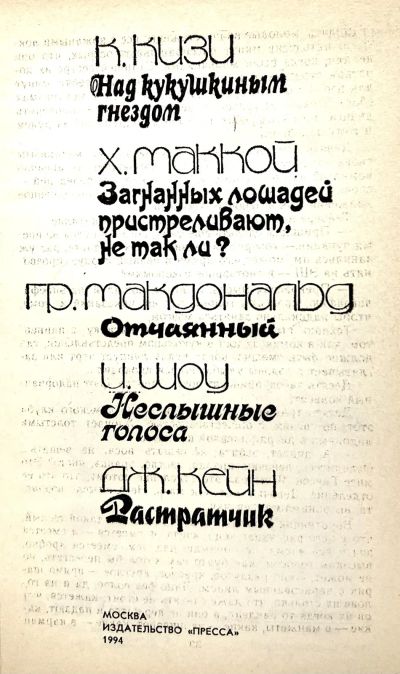 К. КИЗИ
Над кукушкиным
гнездом
Х. МАККОЙ
Загнанных лошадей
пристреливают,
не так ли?
ГР. МАКДОНАЛЬД
Отчаянный
И. ШОУ
Неслышные
голоса
ДЖ. КЕЙН
Растратчик
МОСКВА
ИЗДАТЕЛЬСТВО «ПРЕССА»
1994